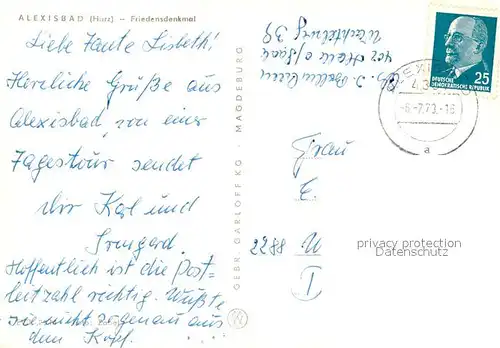 ALEXISBAD (Harz) — Friedensdenkmal
Liebe Tante Lisbeth!
Herzliche Grüße aus
Alexisbad, von einer
Tagestour sendet
dir Karl und
Irmgard.
Hoffentlich ist die Post-
leitzahl richtig. Wußte
sie nicht so genau aus
dem Kopf.
GEBR. GARLOFF KG · MAGDEBURG
402 Halle
39
DEUTSCHE
DEMOKRATISCHE REPUBLIK
25
-6.-7.70.-16
a
Frau
E.
2288 U
I
privacy protection
Datenschutz